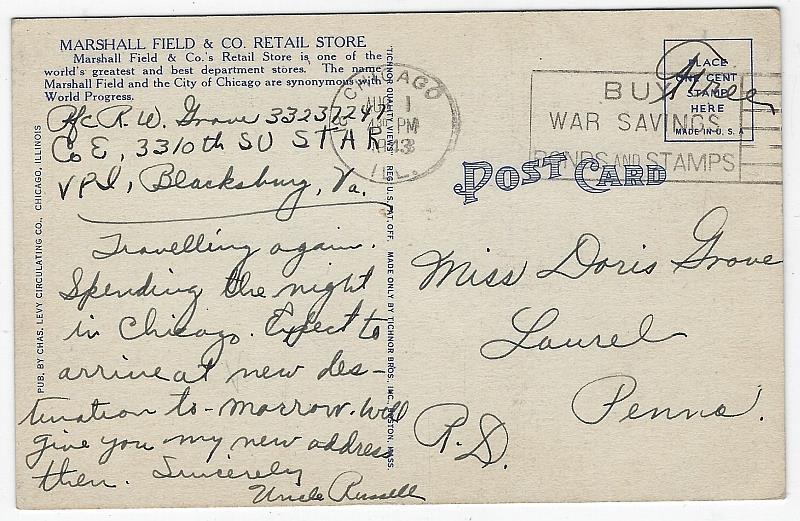 MARSHALL FIELD & CO. RETAIL STORE
Marshall Field & Co.'s Retail Store is one of the
world's greatest and best department stores. The name
Marshall Field and the City of Chicago are synonymous with
World Progress.
Pfc R. W. Grove 33237247
Co E, 3310th SU STAR
VPI, Blacksburg, Va.
Travelling again.
Spending the night
in Chicago. Expect to
arrive at new des-
tination to-morrow. Will
give you my new address
then. Sincerely
Uncle Russell
PUB. BY CHAS. LEVY CIRCULATING CO., CHICAGO, ILLINOIS
"TICHNOR QUALITY VIEWS" REG. U. S. PAT. OFF. MADE ONLY BY TICHNOR BROS., INC., BOSTON, MASS.
CHICAGO
AUG 1
PM
1943
ILL.
BUY
WAR SAVINGS
BONDS AND STAMPS
PLACE
ONE CENT
STAMP
HERE
MADE IN U. S. A
Free
POST CARD
Miss Doris Grove
Laurel
Penna.
R.D.